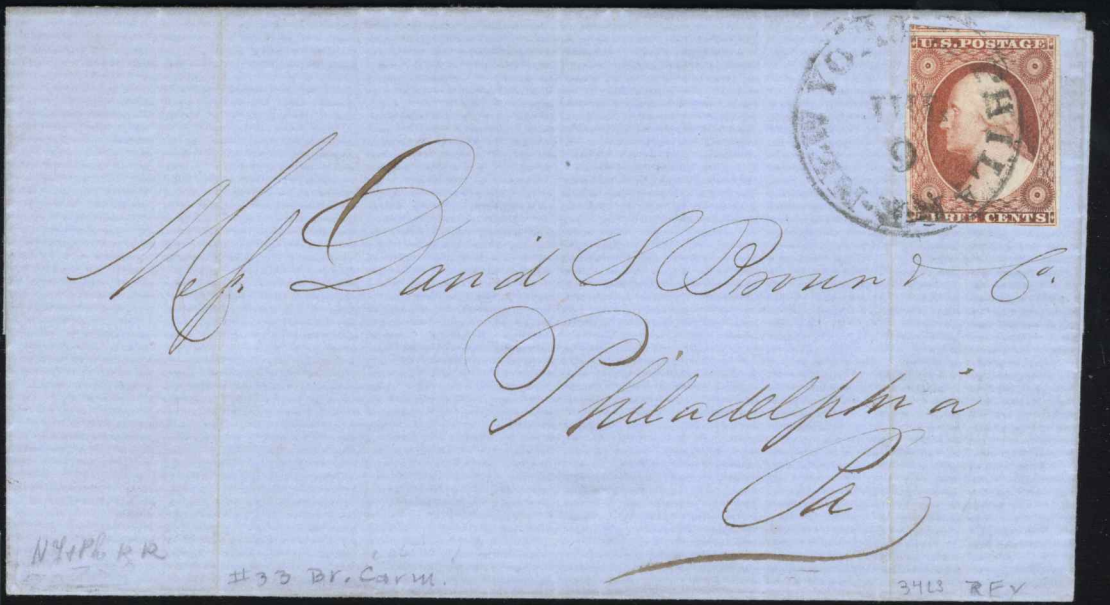 NEW YORK & PHILA
JUL
9
U.S. POSTAGE
THREE CENTS
Mess. David S Brown & Co.
Philadelphia
Pa
NY & Ph RR
#33 Br. Carm.